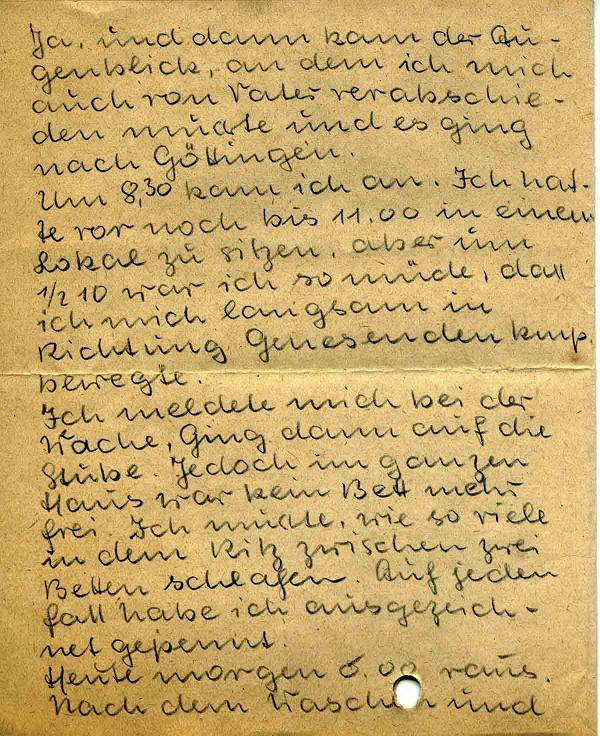 Ja, und dann kam der Au-
genblick, an dem ich mich
auch von Vater verabschie-
den mußte und es ging
nach Göttingen.
Um 8,30 kam ich an. Ich hat-
te vor noch bis 11.00 in einem
Lokal zu sitzen, aber um
1/2 10 war ich so müde, daß
ich mich langsam in
Richtung Genesendenkmp.
bewegte.
Ich meldete mich bei der
Wache, Ging dann auf die
Stube. Jedoch im ganzen
Haus war kein Bett mehr
frei. Ich mußte, wie so viele
in dem Ritz zwischen zwei
Betten schlafen. Auf jeden
fall habe ich ausgezeich-
net gepennt.
Heute morgen 6.00 raus.
Nach dem Waschen und